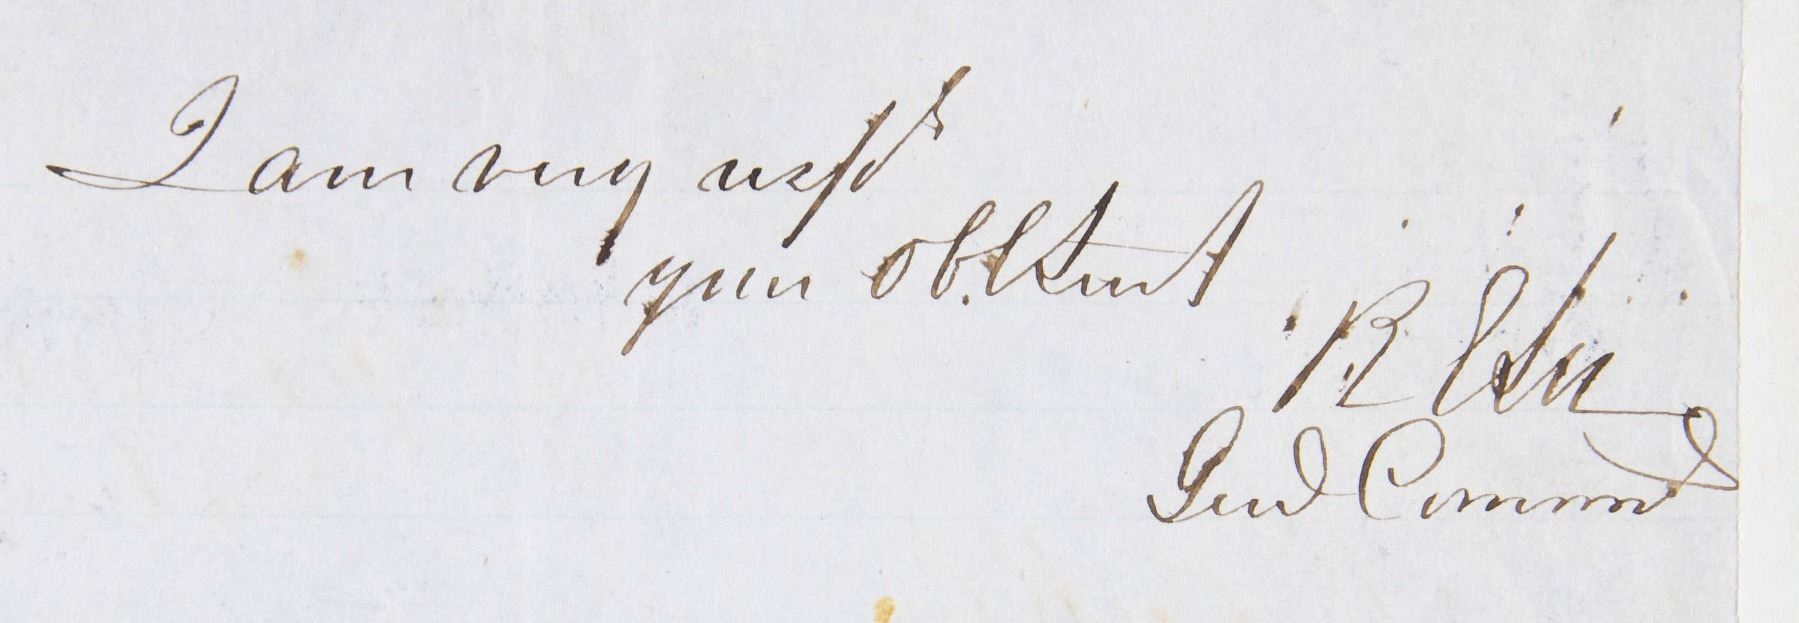 I am very respy
your obt Servt
R E Lee
Genl Command